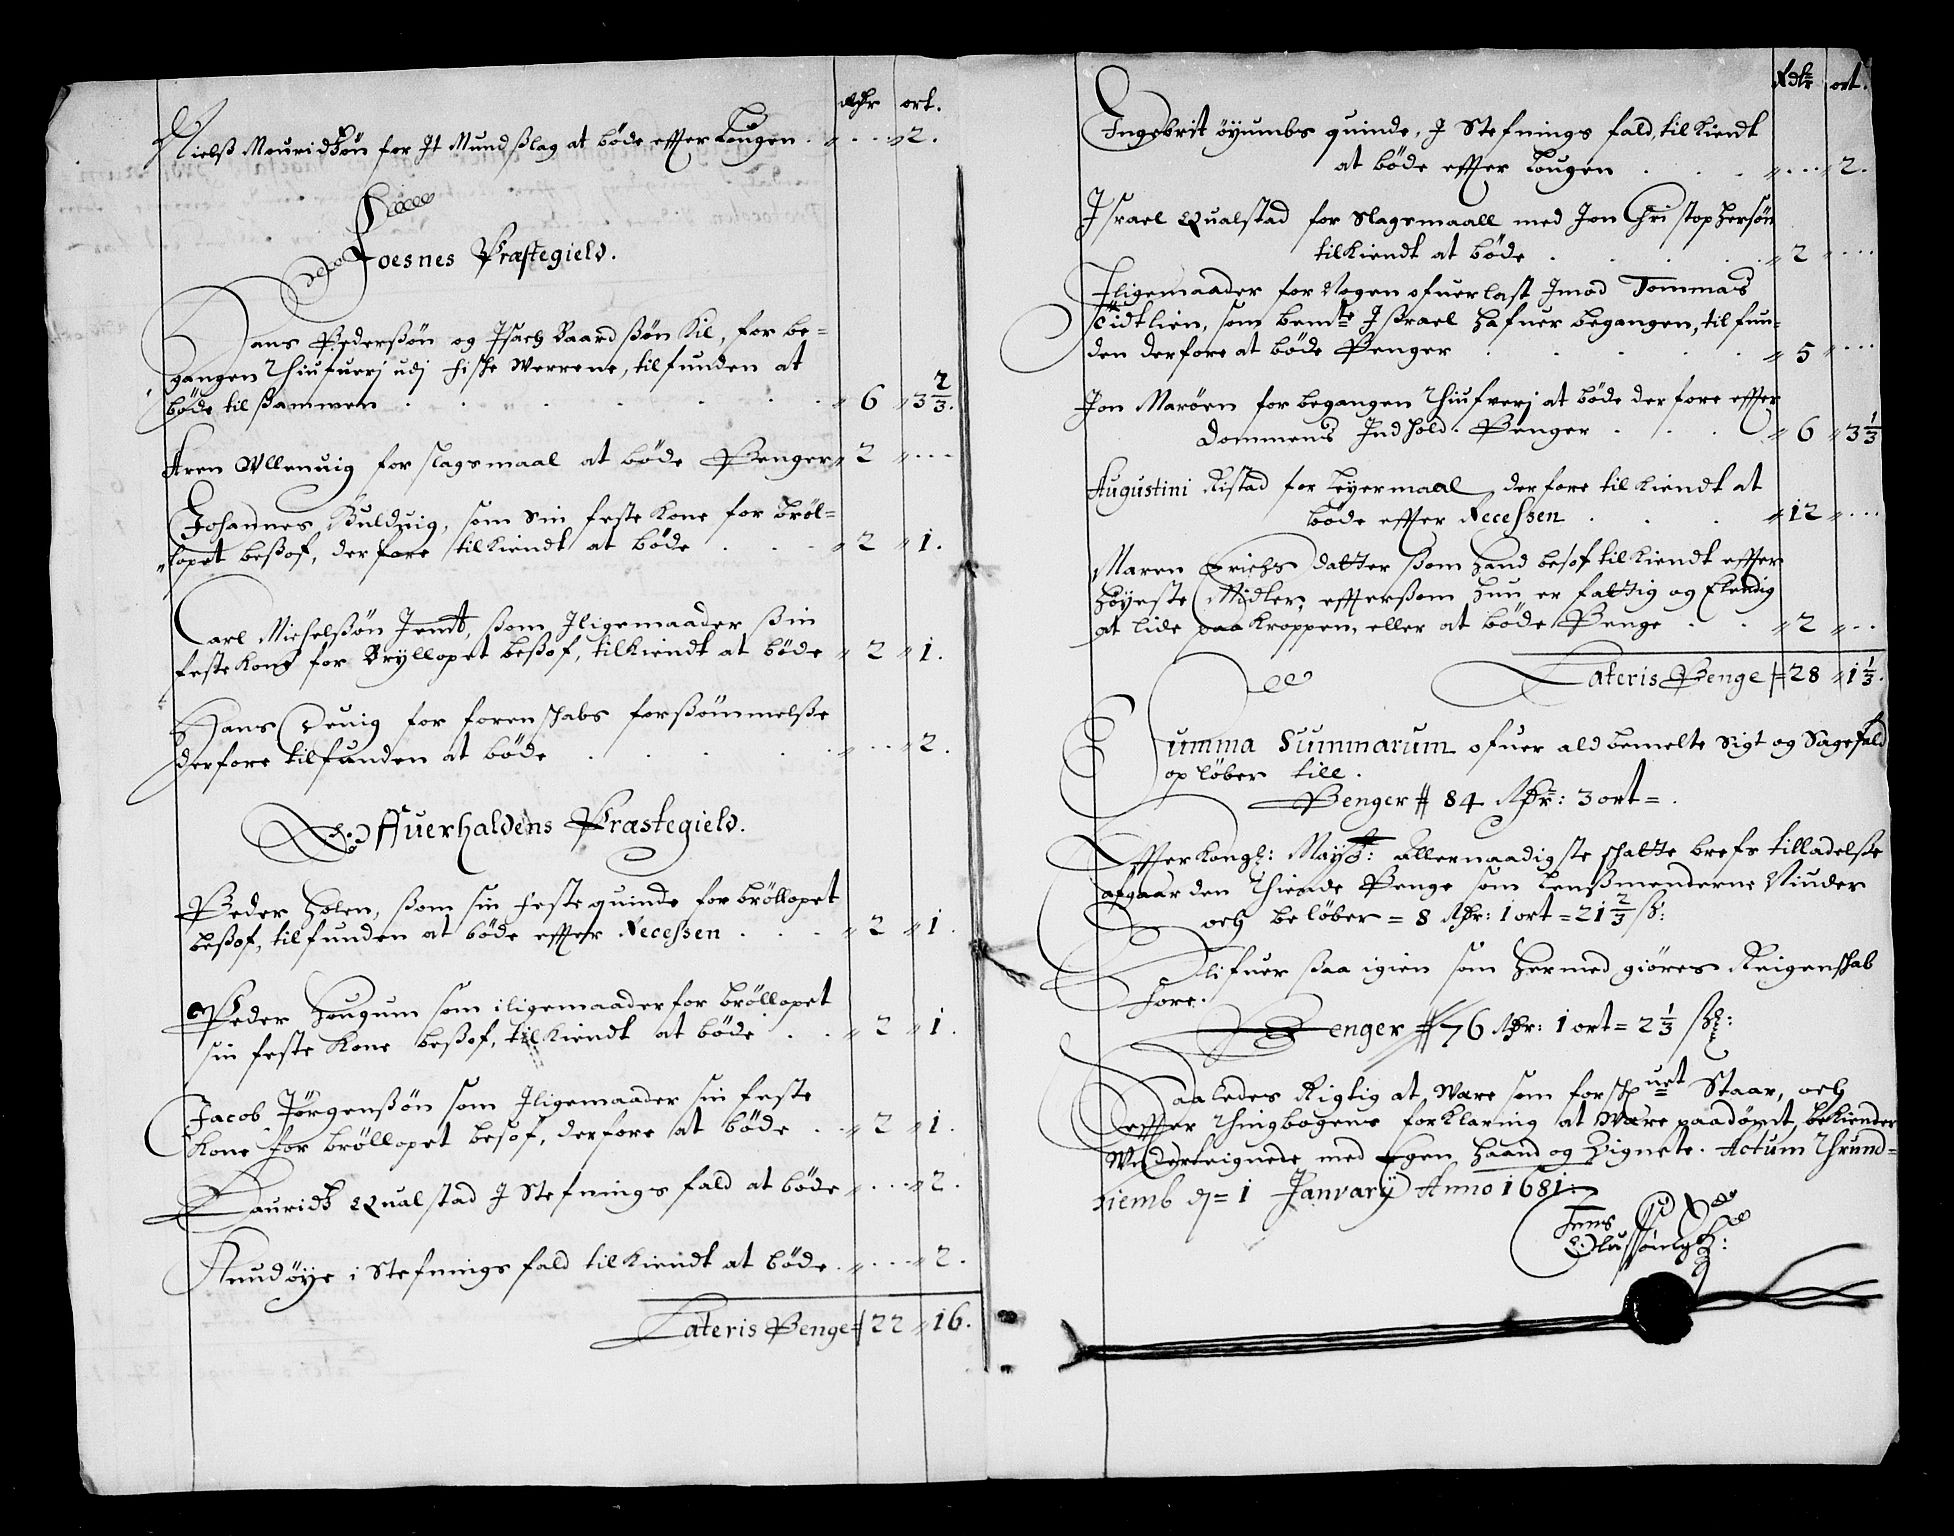 Rdr ort.
Nielß Mouridßøn for It Mundßlag at bøde effter Lougen . „ . . . „ 2.
Foesnes Præstegield.
Hans Pederßøn og Isach Baardßøn Kil, for be-
gangen Thiufuerj udj fische Werrene, tilfunden at
bøde tilßammen . . . . „ 6 „ 3 2/3.
Aren Ullenuig for slagsmaal at bøde Penger „ 2 „ . . .
Johannes Bulduig, som Sin feste Kone for Brøl-
lopet beßof, derfore tilkiendt at bøde . . . „ 2 „ 1.
Carl Michelßøn Jemt, ßom Iligemaader ßin
feste Kone for Bryllopet beßof, tilkiendt at bøde „ 2 „ 1.
Hans Deuig for forenschabs forßømmelße
derfore tilfunden at bøde . . . . „ . . . „ 2.
Auerhaldens Præstegield.
Peder Holen, ßom sin feste quinde for brøllopet
beßof, tilfunden at bøde effter Recessen . . . „ 2 „ 1.
Peder Hougum som iligemaader for brøllopet
sin feste Kone beßof, tilkiendt at bøde . . „ 2 „ 1.
Jacob Jørgenßøn som Iligemaader sin feste
Kone for brøllopet besof, derfore at bøde . . „ 2 „ 1.
Lauridß Qualstad I Stefnings fald at bøde „ . . . „ 2.
Knud øye i Stefnings fald tilkiendt at bøde . „ . . . „ 2.
Lateris Penge 22 „ 16.
Rdlr ort.
Ingebrit øyumbs quinde, I Stefnings fald, tilkiendt
at bøde effter Lougen . . . „ . . . „ 2.
Israel Qualstad for Slagsmaall med Jon Christophersøn
tilkiendt at bøde . . . . „ 2 „ . . .
Iligemaader for Nogen ofuerlast Imod Tommas
lien, som bemte Israel hafuer begangen, tilfun-
den derfore at bøde Penger . . . . „ 5 „ . . .
Jon Marøen for begangen Thiufverj at bøde derfore effter
Dommens Indhold. Penger . . . „ 6 „ 3 1/3
Augustini Ristad for Leyermaal derfore tilkiendt at
bøde effter Recessen . . . „ 12 „ . . .
Maren Erichs datter ßom hand besof tilkiendt effter
høyeste Midler, effterßom hun er fattig og Elendig
at lide paa Kroppen, eller at bøde Penge . . „ 2 „ . .
Lateris Penge 28 „ 1 1/3.
Summa Summarum ofuer ald bemelte Sigt og Sagefald
opløber till.
Penger 84 Rdr: 3 ort = .
Effter Kongl: Mayst: Allernaadigste schatte brefs tilladelße
afgaar den Thiende Penge som Lenßmenderne Niuder
och beløber = 8 Rdr: 1 ort = 21 2/3 ß:
Blifuer ßaa igien som hermed giøres Reigenschab
fore.
Penger 76 Rdr: 1 ort = 2 1/3 ß:
Saaledes Rigtig at Være som forschrevet Staar, och
effter Thingbogens forklaring at Være paadømt, bekiender
Underteignede med Egen haand og Zignete. Actum Thrund-
hiemb d = 1 Janvarij Anno 1681.
Jens
Olufsøn